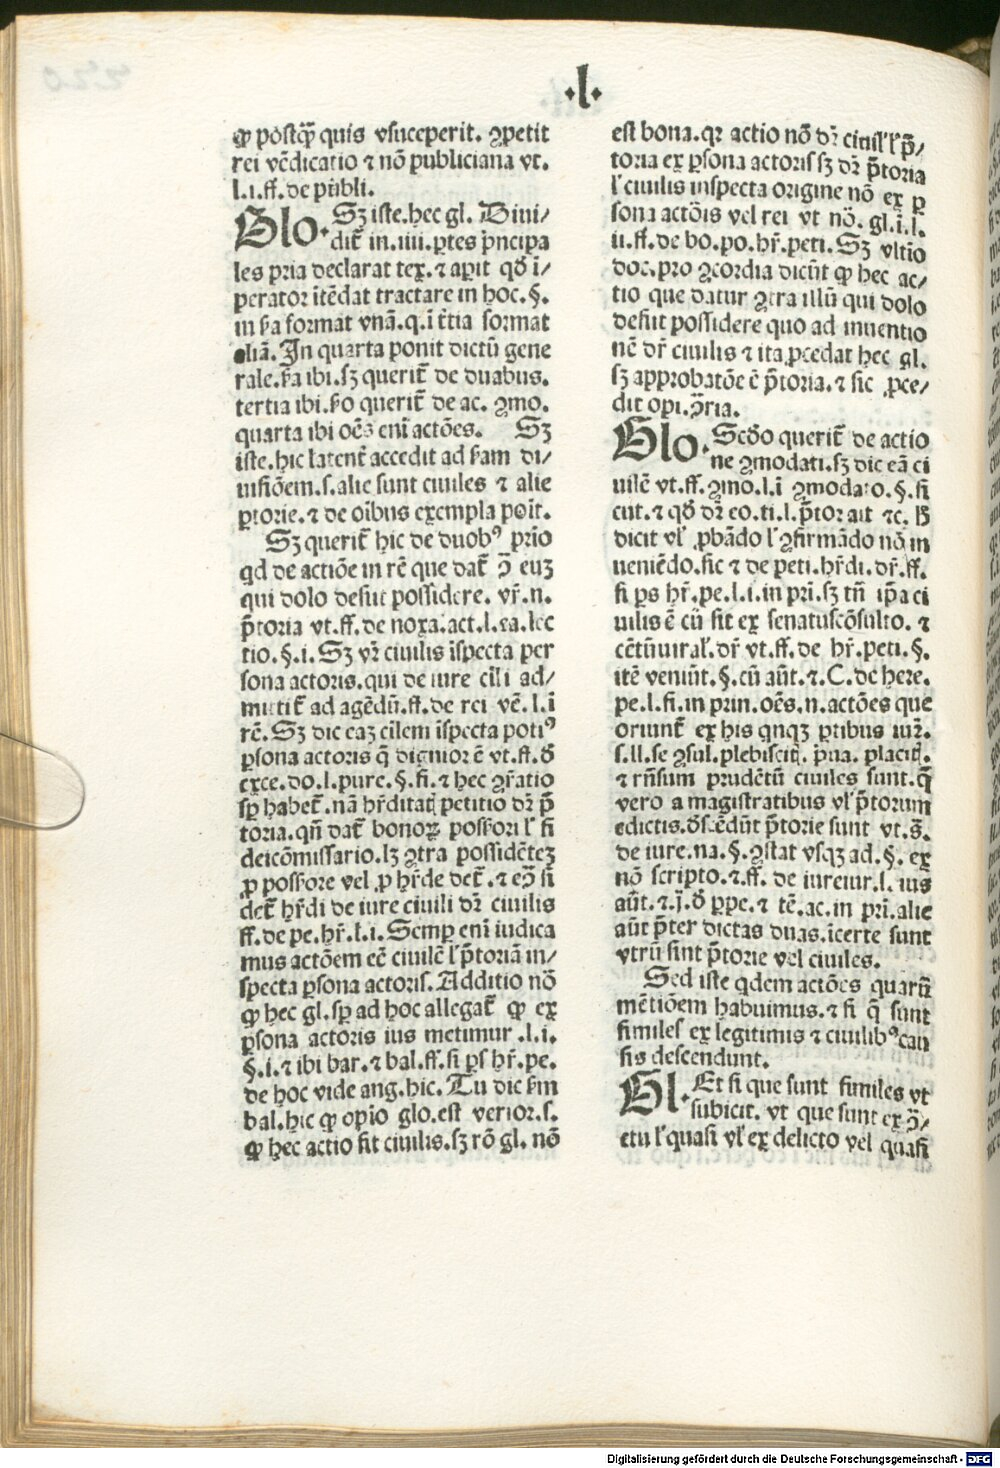 ·l·
ꝙ postq̄ꝫ quis vsuceperit. ꝯpetit
rei vēdicatio ⁊ nō publiciana vt.
l.i.ff.de publi.
Glo. Sꝫ iste.hec gl. Diui/
dit̄ in.iiii.ꝑtes p̄ncipa
les pria declarat tex.⁊ aꝑit qd̄ ī/
perator ītēdat tractare in hoc.§.
in ẜa format vnā.q.ī t̄tia format
aliā. In quarta ponit dictū gene
rale.ẜa ibi.sꝫ querit̄ de duabus.
tertia ibi.ẜo querit̄ de ac. ꝯmo.
quarta ibi oēs enī actōes. Sꝫ
iste.hic latent̄ accedit ad ẜam di/
uisiōem.s.alie sunt ciuiles ⁊ alie
p̄torie.⁊ de oībus exempla poīt.
Sꝫ querit̄ hic de duobꝰ prīo
qd de actiōe in rē que dat̄ ↄ̄ euꝫ
qui dolo desiit possidere. vr̄.n.
p̄toria vt.ff.de noxa.act.l.ea.lec
tio.§.i. Sꝫ vr̄ ciuilis īspecta per
sona actoris.qui de iure cīli ad/
mittit̄ ad agēdū.ff.de rei vē.l.i
rē. Sꝫ dic eaꝫ cīlem īspecta potiꝰ
ꝑsona actoris q̄ dignior ē vt.ff.đ
exce.do.l.pure.§.fi.⁊ hec gn̄atio
sꝑ habet̄.nā hr̄ditatꝭ petitio dr̄ p̄
toria.qn̄ dat̄ bonoꝝ posẜori ł fi
deicōmissario.lꝫ ꝯtra possidēteꝫ
ꝓ posẜore vel ꝓ hr̄de det̄.⁊ eↄ̄ si
det̄ hr̄di de iure ciuili dr̄ ciuilis
ff.de pe.hr̄.l.i. Semꝑ enī iudica
mus actōem eē ciuilē ł p̄toriā in/
specta ꝑsona actoris. Additio nō
ꝙ hec gl.sꝑ ad hoc allegat̄ ꝙ ex
ꝑsona actoris ius metimur .l.i.
§.i.⁊ ibi bar.⁊ bal.ff.si ps hr̄.pe.
de hoc vide ang.hic. Tu dic ẜm
bal.hic ꝙ opīo glo.est verior.s.
ꝙ hec actio sit ciuilis.sꝫ rō gl. nō
est bona.qꝛ actio nō dr̄ ciuił ł p̄/
toria ex ꝑsona actoris sꝫ dr̄ p̄toria
ł ciuilis inspecta origine nō ex ꝑ
sona actōis vel rei vt nō. gl.ī.l.
ii.ff.de bo.po.hr̄.peti. Sꝫ vltīo
doc.pro ꝯcordia dicūt ꝙ hec ac/
tio que datur ꝯtra illū qui dolo
desiit possidere quo ad inuentio
nē dr̄ ciuilis ⁊ ita ꝓcedat hec gl.
sꝫ approbatōe ē p̄toria.⁊ sic ꝓce/
dit opi.ↄ̄ria.
Glo. Scđo querit̄ de actio
ne ꝯmodati.sꝫ dic eā ci
uilē vt.ff.ꝯmo.l.i ꝯmodato.§.si
cut.⁊ qđ dr̄ eo.ti.l.p̄tor ait ⁊c. ħ
dicit vł ꝓbādo ł ꝯfirmādo nō in
ueniēdo.sic ⁊ de peti.hr̄di.dr̄.ff.
si ps hr̄.pe.l.i.in pri.sꝫ tn̄ ip̄a ci
uilis ē cū sit ex senatuscōsulto. ⁊
cētūuirał.dr̄ vt.ff.de hr̄.peti.§.
itē veniūt.§.cū aūt.⁊.C.de here.
pe.l.fi.in prin.oēs.n.actōes que
oriunt̄ ex his qnqꝫ ꝑtibus iur̄.
s.ll.se ꝯsul.plebiscitꝭ. p̄na. placitꝭ.
⁊ rn̄sum prudētū ciuiles sunt.q̄
vero a magistratibus vł p̄torum
edictis.đscēdūt p̄torie sunt vt.s̄.
de iure.na.§.ꝯstat vsqꝫ ad.§. ex
nō scripto.⁊.ff. de iureiur.l. ius
aūt.⁊.j̄.đ ꝑpe.⁊ tē.ac.in pri.alie
aūt p̄ter dictas duas.īcerte sunt
vtrū sint p̄torie vel ciuiles.
Sed iste qdem actōes quarū
mētiōem habuimus.⁊ si q̄ sunt
similes ex legitimis ⁊ ciuilibꝰ cau
sis descendunt.
Gl. Et si que sunt similes vt
subicit. vt que sunt ex ↄ̄/
ctu ł quasi vł ex delicto vel quasi
Digitalisierung gefördert durch die Deutsche Forschungsgemeinschaft - DFG